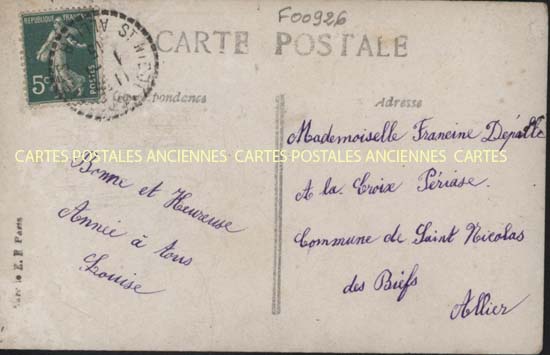 F00926
CARTE POSTALE
REPUBLIQUE FRANÇAISE
5c POSTES
Adresse
Mademoiselle Francine
A la Croix Périase.
Commune de Saint Nicolas
des Biefs
Allier
Bonne et Heureuse
Année à tous
Louise
CARTES POSTALES ANCIENNES CARTES POSTALES ANCIENNES CARTES
Paris